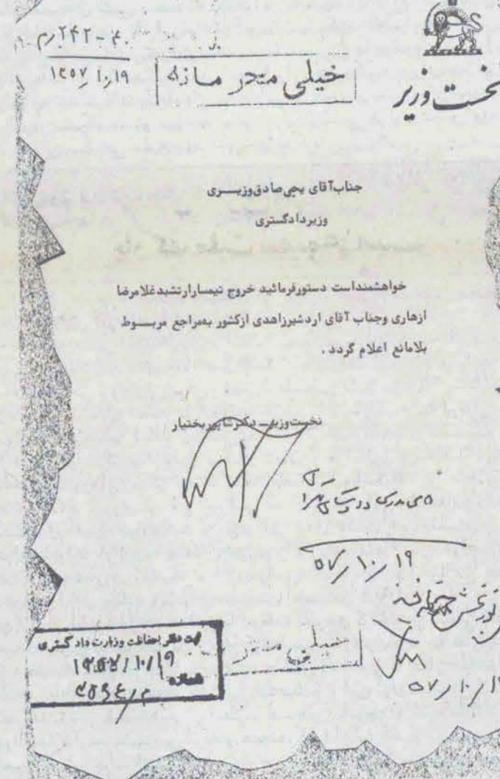 ۴۰-۲۴۲/م
۱۳۵۷/۱۰/۱۹
خیلی محرمانه
نخست وزیر
جناب آقای یحیی صادق وزیری
وزیر دادگستری
خواهشمند است دستور فرمائید خروج تیمسار ارتشبد غلامرضا
ازهاری و جناب آقای اردشیر زاهدی از کشور به مراجع مربوط
بلامانع اعلام گردد .
نخست وزیر - دکتر شاپور بختیار
۵۷/۱۰/۱۹
ثبت دفتر حفاظت وزارت دادگستری
۱۳۵۷/۱۰/۱۹
شماره
خیلی محرمانه
۵۷/۱۰/۱۹